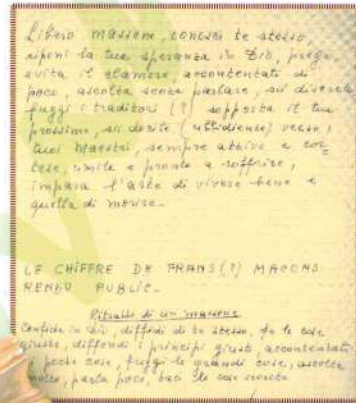 Libero massone, conosci te stesso,
riponi la tua speranza in Dio, prega,
evita il clamore, accontentati di
poco, ascolta senza parlare, sii discreto
fuggi i traditori (?) sopporta il tuo
prossimo, sii docile (ubbidiente) verso i
tuoi Maestri, sempre attivo e cor=
tese, umile e pronto a soffrire,
impara l'arte di vivere bene e
quella di morire.
LE CHIFFRE DE FRANS(?) MACONS
RENDU PUBLIC.
Ritratto di un massone
Confida in Dio, diffidi di te stesso, fa le cose
giuste, diffondi i principi giusti, accontentati
di poche cose, fuggi le grandi cose, ascolta
molto, parla poco, taci le cose